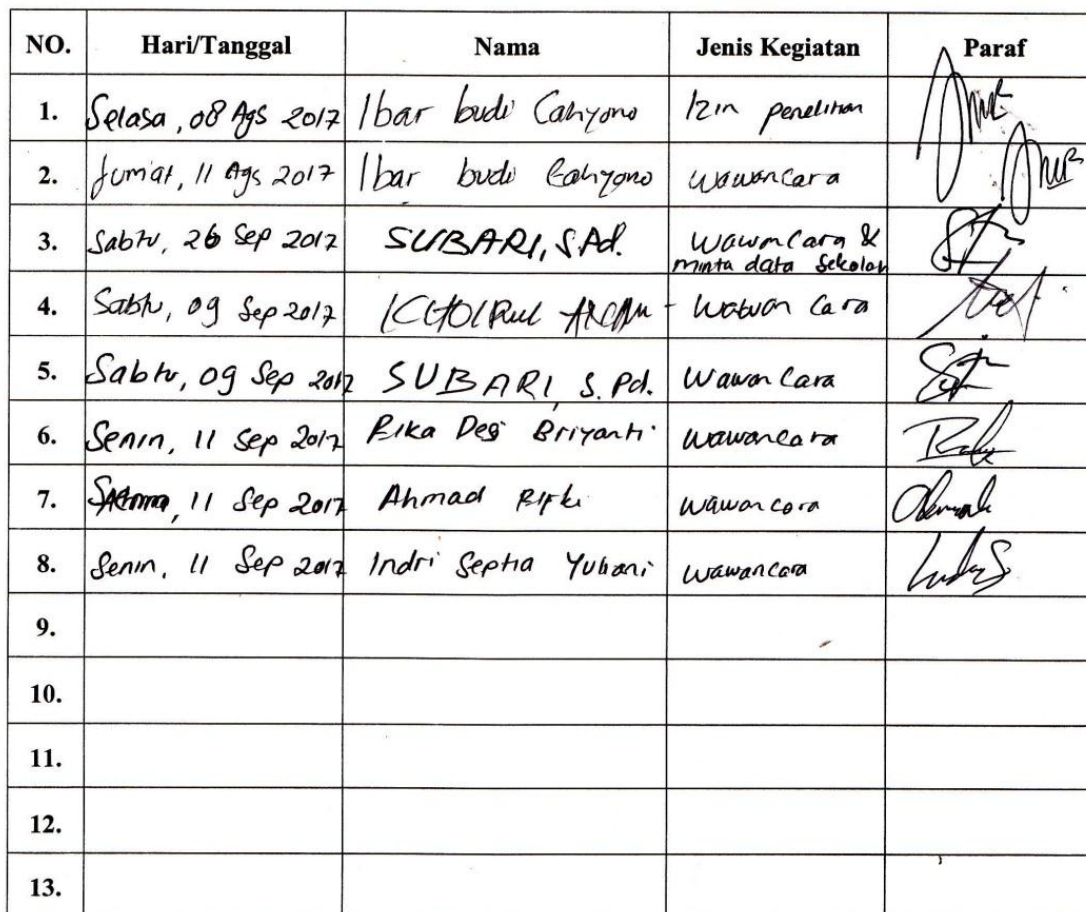 NO. Hari/Tanggal Nama Jenis Kegiatan Paraf
1. Selasa, 08 Ags 2017 Ibar budi Cahyono Izin penelitian
2. Jum'at, 11 Ags 2017 Ibar budi Cahyono wawancara
3. Sabtu, 26 Sep 2017 SUBARI, S.Pd. Wawancara &
minta data Sekolah
4. Sabtu, 09 Sep 2017 Wawancara
5. Sabtu, 09 Sep 2017 SUBARI, S.Pd. Wawancara
6. Senin, 11 Sep 2017 Rika Desi Briyanti wawancara
7. 11 Sep 2017 Ahmad Rifki wawancara
8. Senin, 11 Sep 2017 Indri Septia Yuliani wawancara
9.
10.
11.
12.
13.